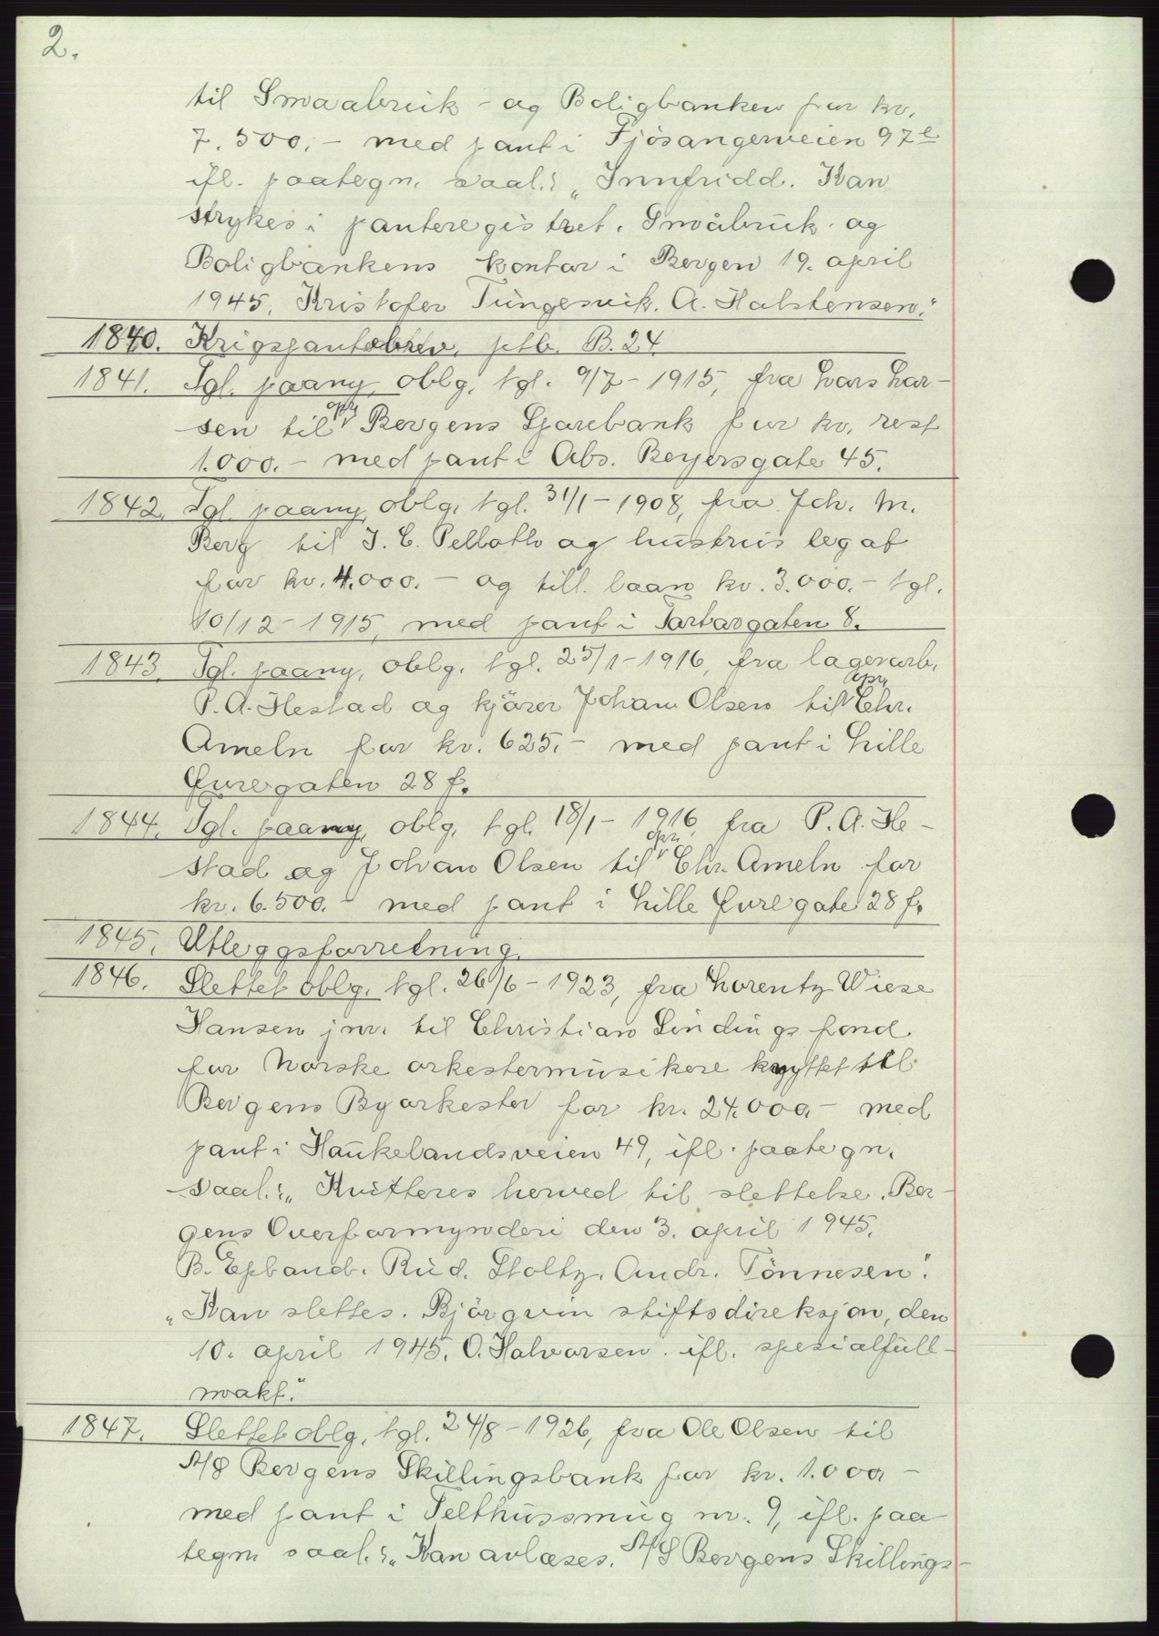 2.
til Smaabruk- og Boligbanken for kr.
7.500.- med pant i Fjösangerveien 97 e
ifl. paategn. saal.: „Innfridd. Kan
strykes i panteregistret. Småbruk- og
Boligbankens kontor i Bergen 19. april
1945. Kristofer Tungesvik. A. Halstensen."
1840. Krigspantebrev, prtb. B. 24
1841. Tgl. paany, oblg. tgl. 9/7-1915, fra Lars Lar-
sen til opr Bergens Sparebank for kr. rest
1.000.- med pant i Abs. Beyersgate 45.
1842. Tgl. paany oblg. tgl. 31/1-1908, fra Joh. M.
Berg til J. C. og hustrus legat
for kr. 4.000.- og till. laan kr. 3.000.- tgl.
10/12-1915, med pant i Tartargaten 8.
1843. Tgl. paany, oblg. tgl. 25/1-1916, fra lagerarb.
P. A. Hestad og kjörer Johan Olsen til opr Chr.
Ameln for kr. 625.- med pant i Lille
Öuregaten 28 f.
1844. Tgl. paany, oblg. tgl. 18/1-1916, fra P. A. He-
stad og Johan Olsen til opr Chr. Ameln for
kr. 6.500.- med pant i Lille Öuregate 28 f.
1845. Utleggsforretning.
1846. Slettet oblg. tgl. 26/6-1923, fra Lorentz Wiese
Hansen jnr. til Christian Sindings fond
for Norske orkestermusikere knyttet til
Bergens Byorkester for kr. 24.000.- med
pant i Haukelandsveien 49, ifl. paategn.
saal.: „Kvitteres herved til slettelse. Ber-
gens Overformynderi den 3. april 1945.
B. Rud. Stoltz. Andr. Tönnesen."
„Kan slettes. Björgvin stiftsdireksjon, den
10. april 1945. O. Halvorsen. ifl. spesialfull-
makt."
1847. Slettet oblg. tgl. 24/8-1926, fra Ole Olsen til
A/S Bergens Skillingsbank for kr. 1.000.-
med pant i Telthussmug nr. 9, ifl. paa-
tegn saal.: „Kan avlæses. A/S Bergens Skillings-